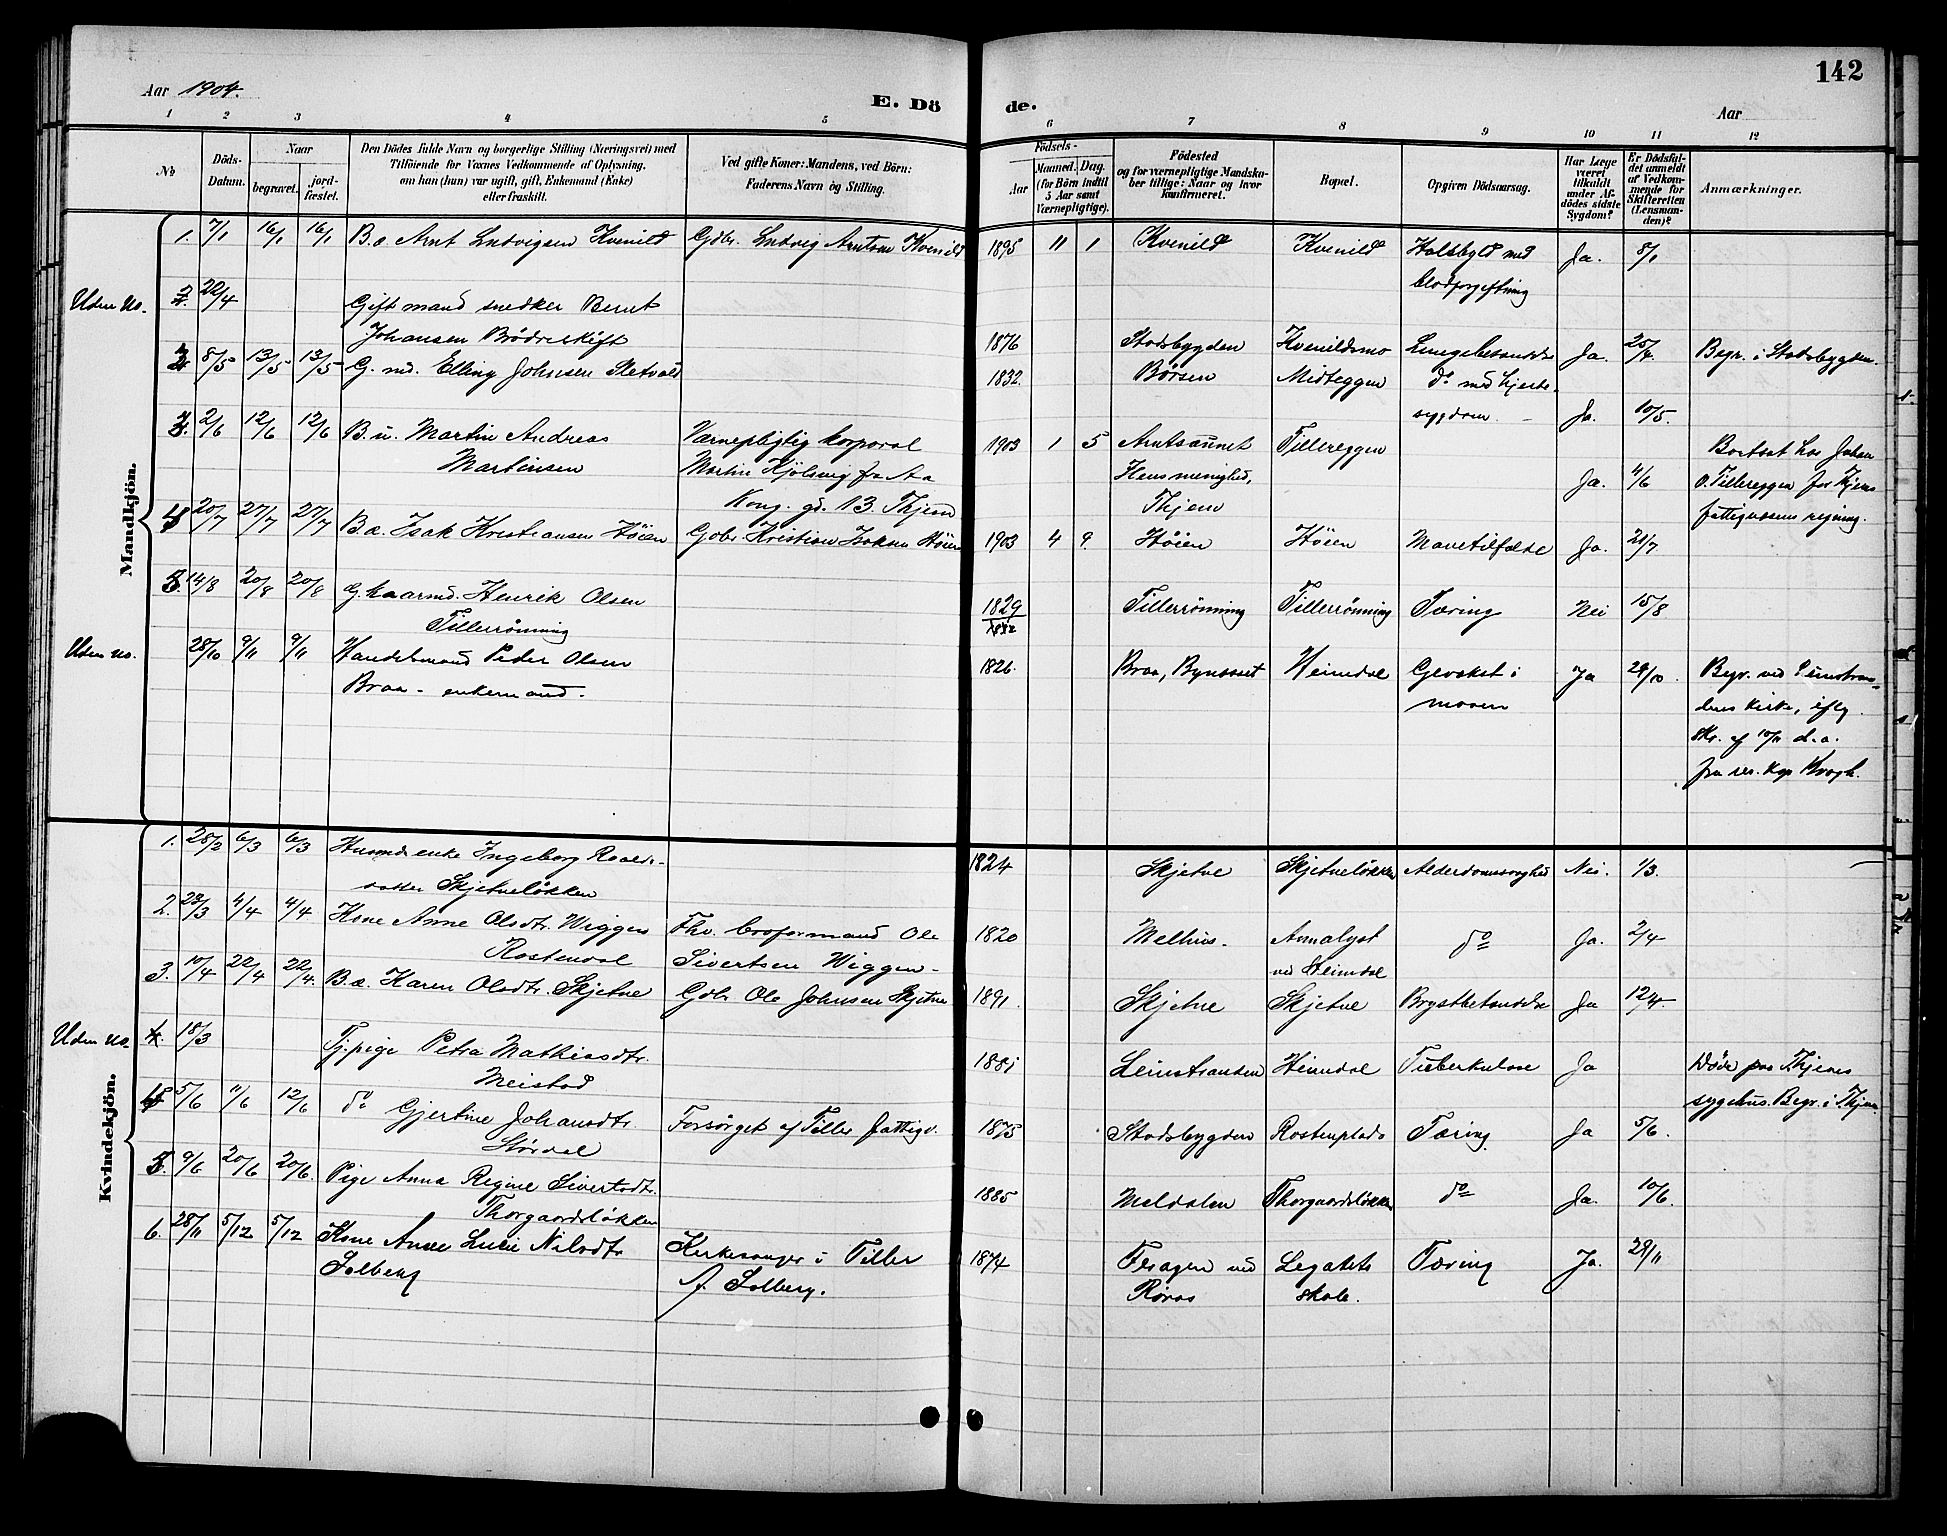 142
Aar 1904.
E. Dö de.
Aar
1 2 3 4 5 6 7 8 9 10 11 12
No
Döds-Datum.
Naar
begravet.
jord-fæstet.
Den Dödes fulde Navn og borgerlige Stilling (Næringsvei) med
Tilföiende for Voxnes Vedkommende af Oplysning,
om han (hun) var ugift, gift, Enkemand (Enke)
eller fraskilt.
Ved gifte Koner: Mandens, ved Börn:
Faderens Navn og Stilling.
Födsels-
Aar
Maaned. Dag.
(for Börn indtil
5 Aar samt
Værnepligtige).
Födested
og for værnepligtige Mandska-
ber tillige: Naar og hvor
konfirmeret.
Bopæl.
Opgiven Dödsaarsag.
Har Læge
været
tilkaldt
under Af-
dödes sidste
Sygdom?
Er Dödsfal-
det anmeldt
af Vedkom-
mende for
Skifteretten
(Lensman-
den)?
Anmærkninger.
Mandkjön.
1. 7/1 16/1 16/1 B.æ. Arnt Ludvigsen Kvenild Gdbr. Ludvig Arntsen Kvenild 1895 11 1 Kvenild Kvenild Halsbyld med Ja. 8/1
blodforgiftning
Uden No. 22/4 Gift mand snedker Bernt
Johansen Brödreskift 1876 Stadsbygden Kvenildsmo Lungebetændelse Ja. 25/4 Begr. i Stadsbygden.
2. 8/5 13/5 13/5 G. md. Elling Johnsen Sletvold 1832. Börsen Midteggen do med hjerte-
sygdom. Ja. 10/5.
3. 2/6 12/6 12/6 B.u. Martin Andreas Værnepligtig korporal 1903 1 5 Arntsaunet Tillereggen Bortsat hos Johan
Martinsen Martin Kjölsvig fra Aa Hens menighed, Ja. 4/6 O. Tillereggen for Thjems
Kong. gd. 13. Thjem Thjem fattigvæsens regning.
4 20/7 27/7 27/7 B.æ. Isak Kristiansen Höien Gdbr. Kristian Isaksen Höien 1903 4 9. Höien Höien Mavetilfælde Ja. 21/7
5. 14/8 20/8 20/8 G. kaarmd. Henrik Olsen 1829 Tillerrönning Tillerrönning Tæring Nei 15/8.
Tillerrönning
Uden No. 28/10 9/11 9/11 Handelsmand Peder Olsen 1826. Braa, Bynesset Heimdal Gevækst i Ja 29/10. Begr. ved Leinstran-
Braa - enkemand. maven dens kirke, iflg.
skr. af 10/11 d.a.
fra res. kap Krogh.
Kvindekjön.
1. 28/2 6/3 6/3 Husmdsenke Ingeborg Roalds- 1824 Skjetne Skjetnelökken Alderdomssvaghed Nei. 1/3.
datter Skjetnelökken
2. 28/3 4/4 4/4 Kone Anne Olsdtr. Wiggen Fhv. broformand Ole 1820 Melhus. Annalyst do Ja. 2/4
Rostendal Sivertsen Wiggen. ved Heimdal
3. 10/4 22/4 22/4. B.æ. Karen Olsdtr. Skjetne Gdbr Ole Johnsen Skjetne 1891. Skjetne Skjetne Brystbetændelse Ja 12/4.
Uden No 18/3 Tj. pige Petra Mathiasdtr. 1881 Leinstranden Heimdal Tuberkulose Ja Död paa Thjems
Meistad sygehus. Begr. i Thjem
4 5/6 11/6 12/6 do Gjertine Johansdtr. Forsörget af Tiller fattigv. 1875 Stadsbygden Rostenplads Tæring. Ja 5/6.
Stördal
5. 9/6 20/6 20/6. Pige Anna Regine Sivertsdtr. 1885 Meldalen Thorgaardslökken do Ja. 10/6.
Thorgaardslökken
6. 28/11 5/12 5/12 Kone Anne Lucie Nilsdtr Kirkesanger i Tiller 1874 Feragen ved Legatets Tæring Ja. 29/11
Solberg A. Solberg. Röros skole.